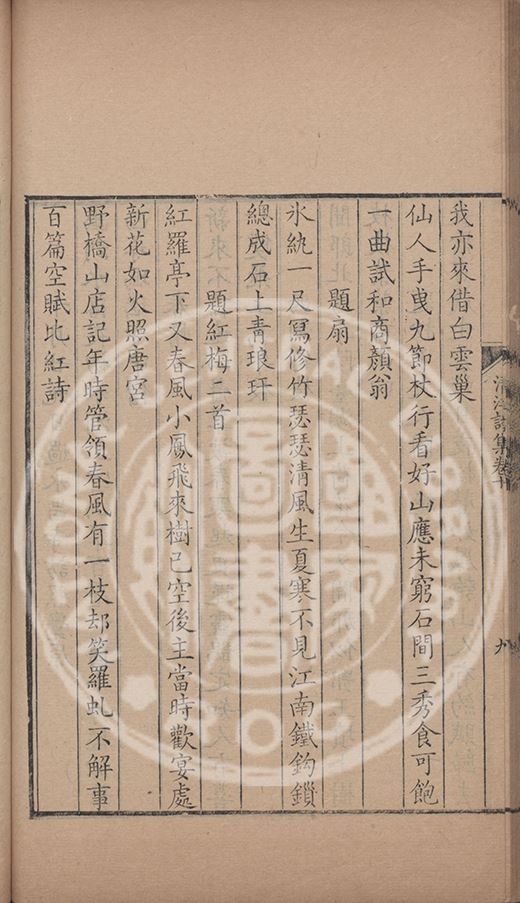 我亦來借白雲巢
仙人手曳九節杖行看好山應未窮石間三秀食可飽
枝曲試和商顏翁
題扇
氷紈一尺冩修竹瑟瑟清風生夏寒不見江南鐵鈎鎖
總成石上青琅玕
題紅梅二首
紅羅亭下又春風小鳳飛來樹已空後主當時歡宴處
新花如火照唐宮
野橋山店記年時管領春風有一枝却笑羅虬不解事
百篇空賦比紅詩
詩集卷十
九